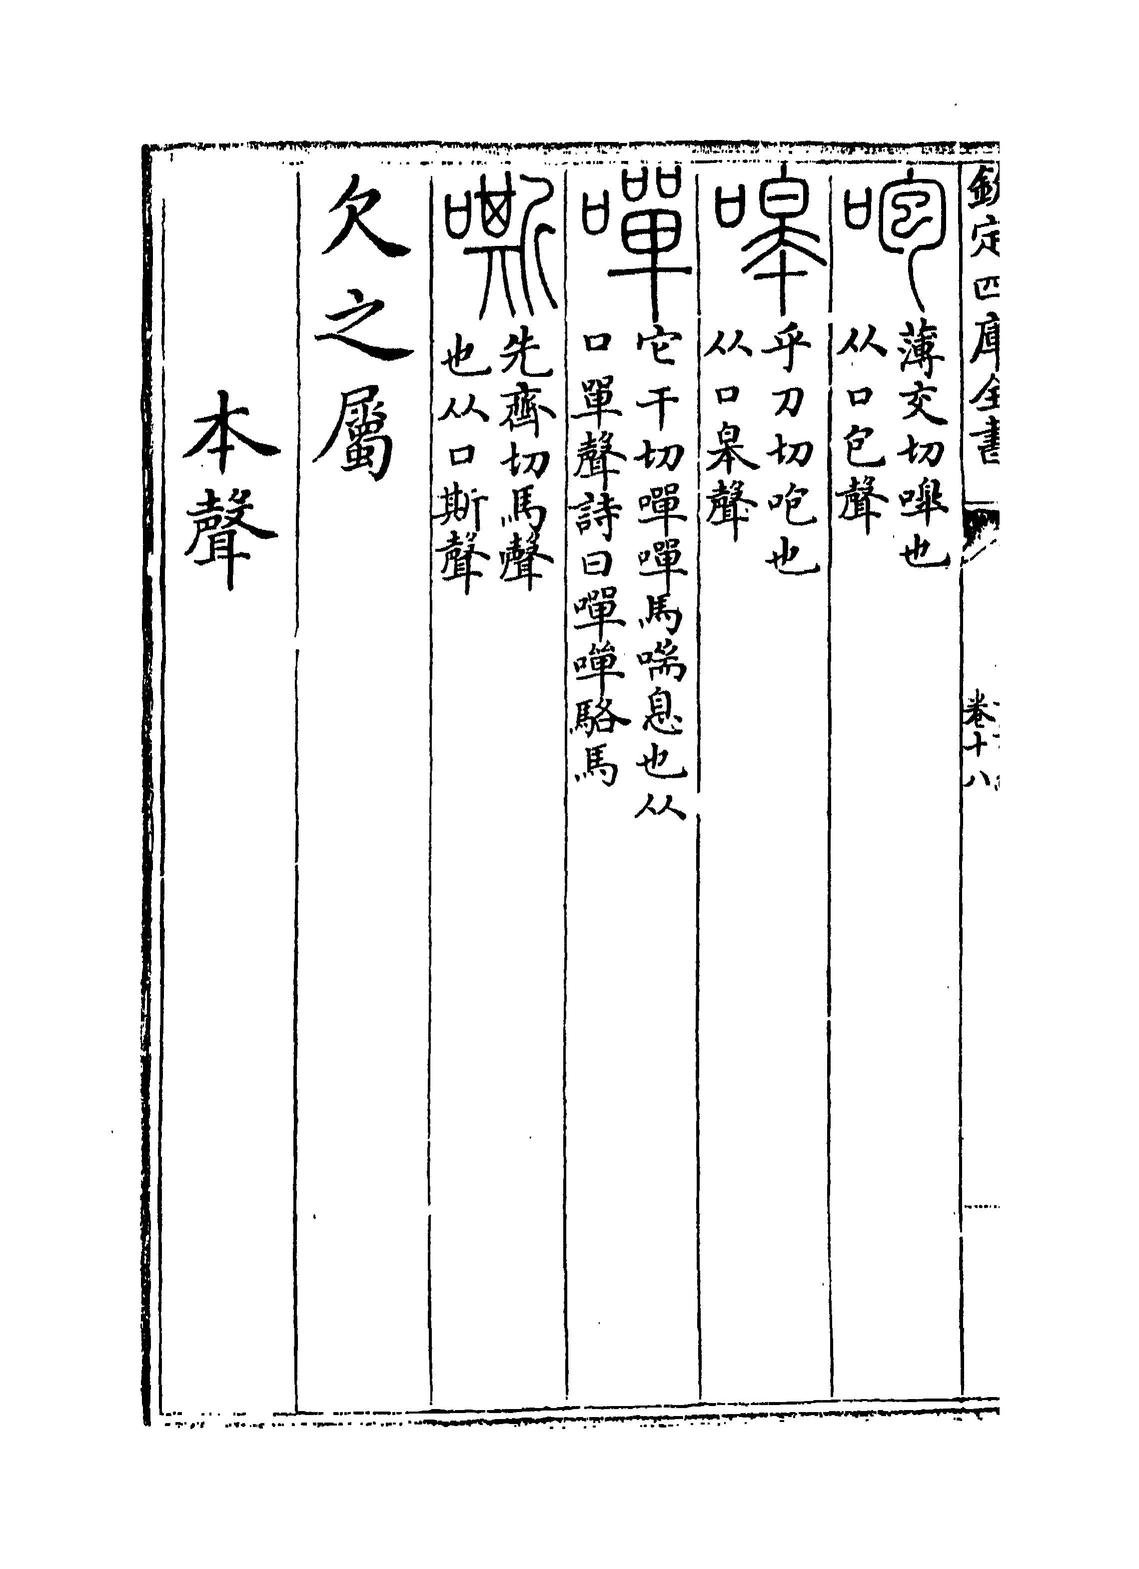 欽定四庫全書
卷十八
咆
薄交切嘷也
从口包聲
嘷
乎刀切咆也
从口皋聲
嘽
它干切嘽嘽馬喘息也从
口單聲詩曰嘽嘽駱馬
嘶
先齊切馬聲
也从口斯聲
欠之屬
本聲